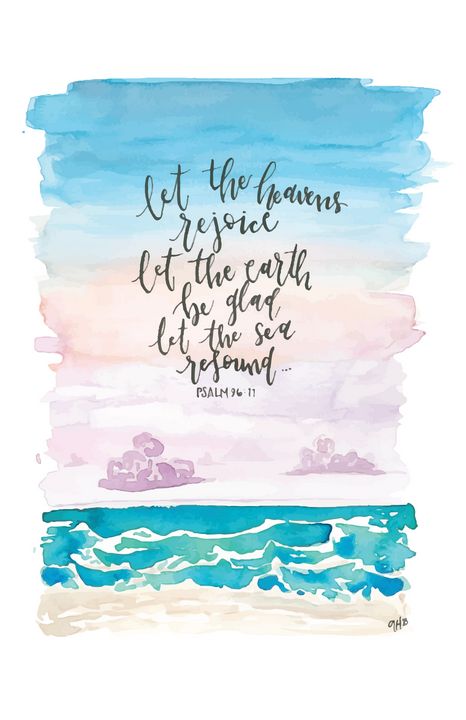 let the heavens
rejoice
let the earth
be glad,
let the sea
resound...
PSALM 96:11